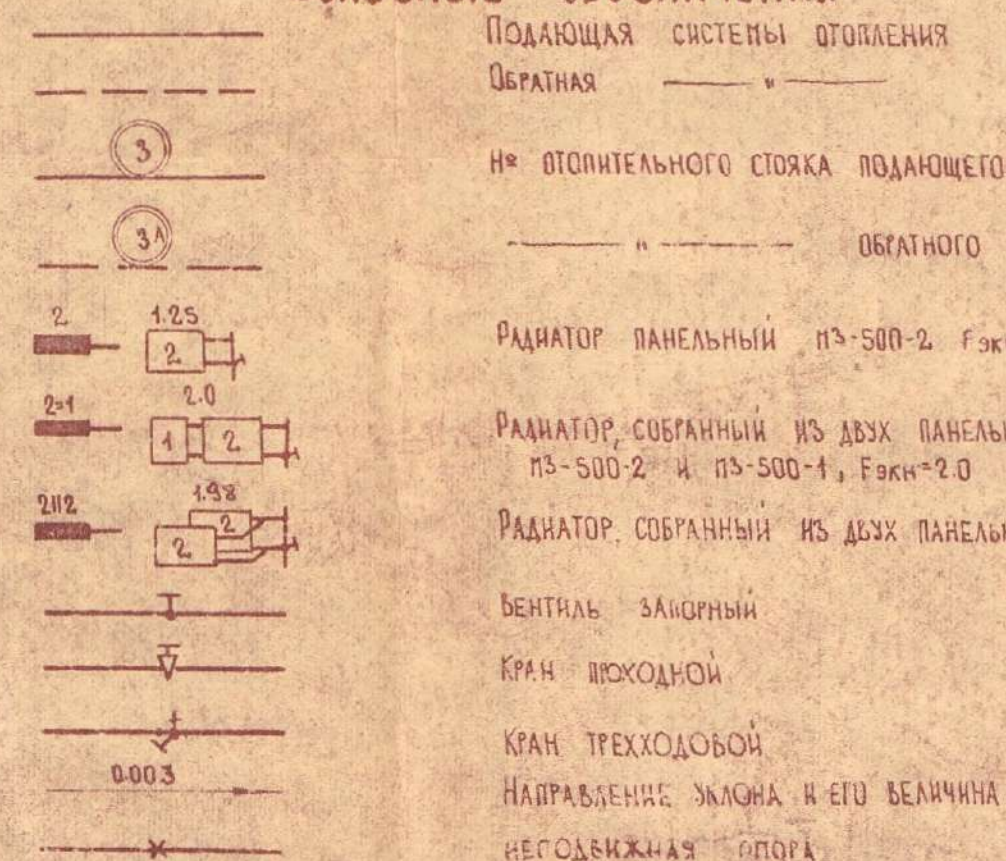 УСЛОВНЫЕ ОБОЗНАЧЕНИЯ
ПОДАЮЩАЯ СИСТЕМЫ ОТОПЛЕНИЯ
ОБРАТНАЯ — " —
3
№ ОТОПИТЕЛЬНОГО СТОЯКА ПОДАЮЩЕГО
3А
— " — ОБРАТНОГО
2 1.25
2
РАДИАТОР ПАНЕЛЬНЫЙ МЗ-500-2 Fэк
2=1 2.0
1 2
РАДИАТОР, СОБРАННЫЙ ИЗ ДВУХ ПАНЕЛЬН
МЗ-500-2 И МЗ-500-1, Fэкн=2.0
2II2 1.98
2
2
РАДИАТОР, СОБРАННЫЙ ИЗ ДВУХ ПАНЕЛЬН
ВЕНТИЛЬ ЗАПОРНЫЙ
КРАН ПРОХОДНОЙ
КРАН ТРЕХХОДОВОЙ
0.003
НАПРАВЛЕНИЕ УКЛОНА И ЕГО ВЕЛИЧИНА
НЕПОДВИЖНАЯ ОПОРА